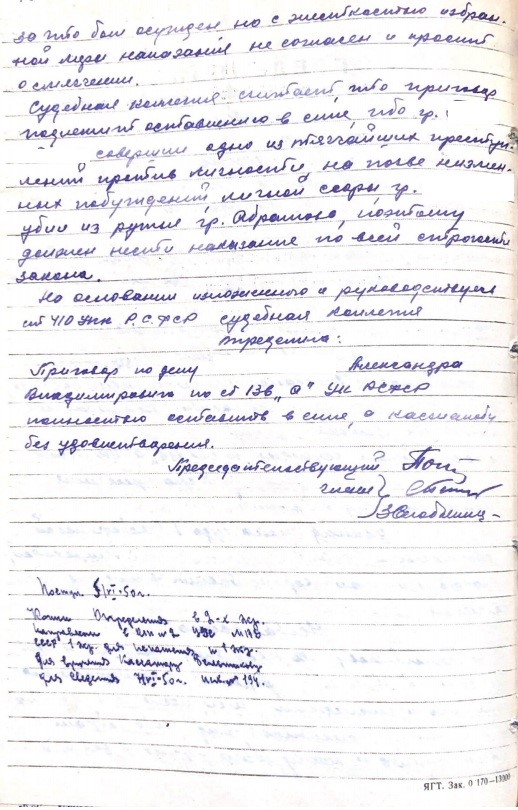 за что был осужден но с жесткостью избран-
ной меры наказания не согласен и просит
о смягчении.
Судебная коллегия считает что приговор
подлежит оставлению в силе, ибо гр.:
совершил одно из тягчайших преступ-
лений против личности, на почве низмен-
ных побуждений, личной ссоры гр.
убил из ружья гр. Абрамова, поэтому
должен нести наказание по всей строгости
закона.
На основании изложенного и руководствуясь
ст 410 УПК Р.С.ФСР судебная коллегия
определила:
Приговор по делу Александра
Владимировича по ст 136 „а" УК РСФСР
полностью оставить в силе, а касжалобу
без удовлетворения.
Председательствующий
члены
Поступ. 5/VI-50г.
Копии Определения в 2-х экз.
направлены в № 2 МВД
СССР 1 экз. для исполнения и 1 экз.
для вручения Кассатору
для сведения 7/VI-50г.
ЯГТ. Зак. 0 170—13000